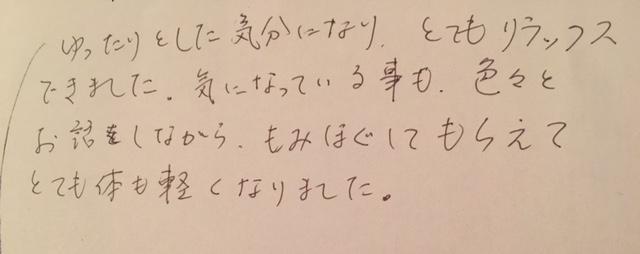 ゆったりとした気分になり、とてもリラックス
できました。気になっている事も、色々と
お話をしながら、もみほぐしてもらえて
とても体も軽くなりました。